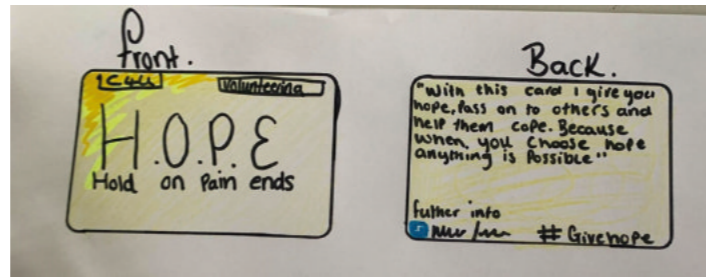 front.
Volunteering
H.O.P.E
Hold on Pain ends
Back.
"With this card I give you
hope, Pass on to others and
help them cope. Because
when, you choose hope
anything is Possible"
futher info
# Givehope